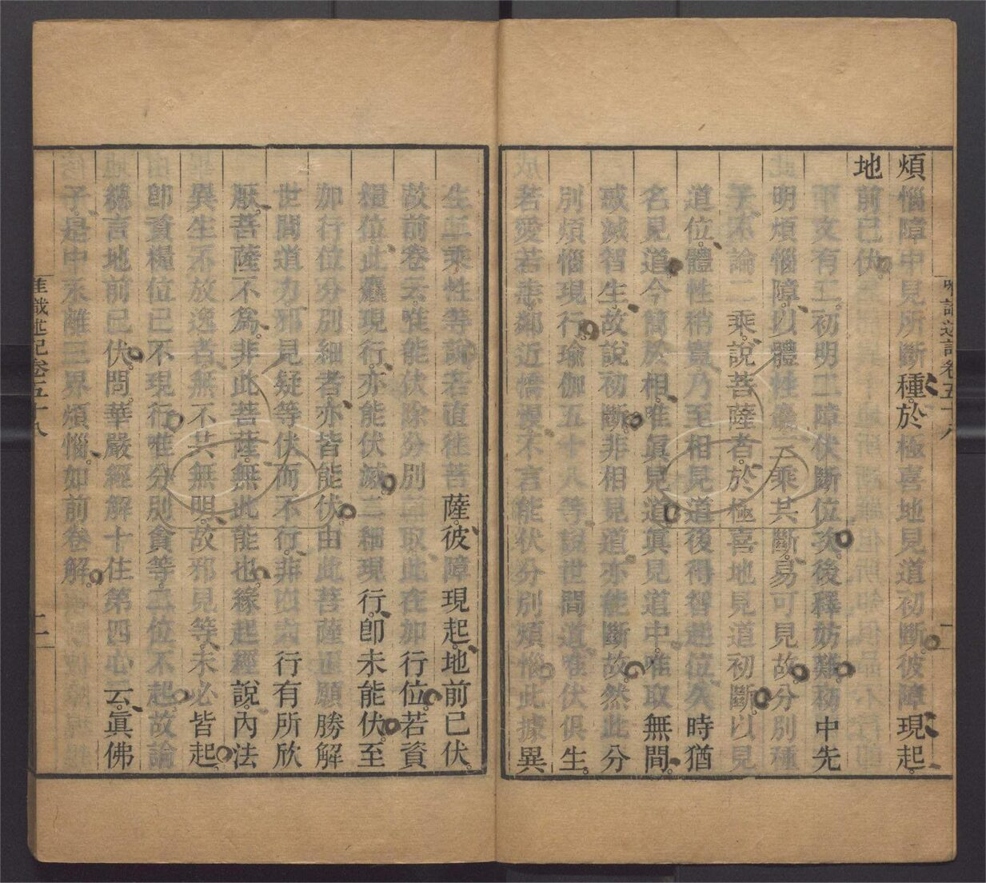 煩惱障中見所斷種於極喜地見道初斷彼障現起
地前已伏
下文有二初明二障伏斷位次後釋妨難初中先
明煩惱障以體性 二乘其斷易可見故分別種
子不論二乘說菩薩者於極喜地見道初斷以見
道位體性稍寬乃至相見道後得智 位久時猶
名見道今簡於相唯真見道真見道中唯取無間
惑滅智生故說初斷非相見道亦能斷故然此分
別煩惱現行瑜伽五十八等說世間道唯伏俱生
若愛若恚鄰近憍慢不言能伏分別煩惱此據異
生二乘性等說若直往菩薩彼障現起地前已伏
故前卷云唯能伏除分別二取此在加行位若資
糧位此麤現行亦能伏滅二種現行卽未能伏至
加行位分別細者亦皆能伏由此菩薩 願勝解
世間道力邪見疑等伏而不行非 行有所欣
厭菩薩不爲非此菩薩無此能也緣起經說內法
異生不放逸者無不共無明故邪見等未必皆起
卽資糧位已不現行唯分別貪等二位不起故論
總言地前已伏問華嚴經解十住第四心云眞佛
子是中永離三界煩惱如前卷解
唯識述記卷五十八
一
唯識述記卷五十八
二